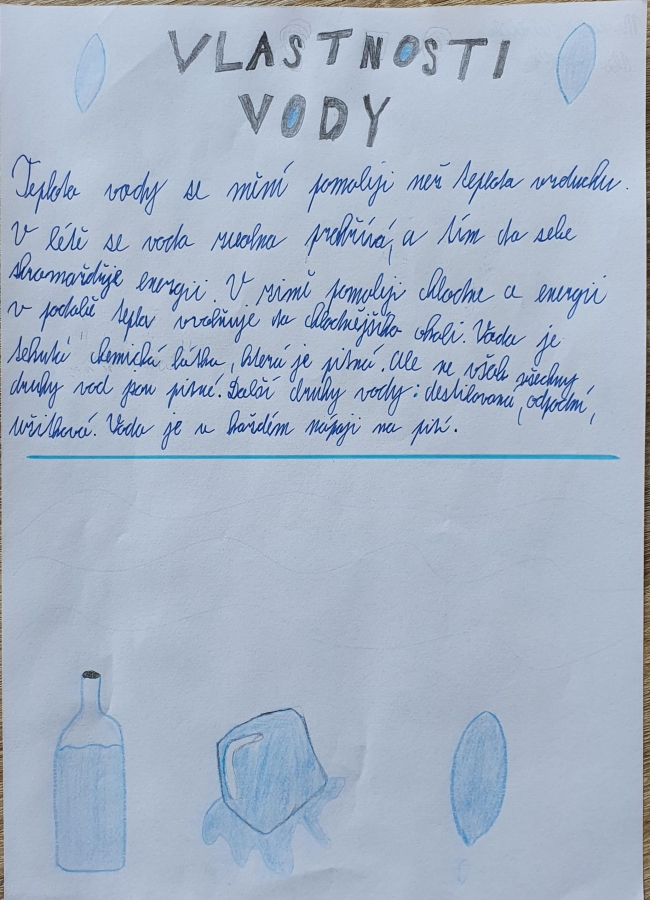 VLASTNOSTI
VODY
Teplota vody se mění pomaleji než teplota vzduchu.
V létě se voda prohřívá, a tím do sebe
shromažďuje energii. V zimě pomaleji chladne a energii
v podobě tepla uvolňuje do chladnějšího okolí. Voda je
tekutá chemická látka, která je pitná. Ale ne však všechny
druhy vod jsou pitné. Další druhy vody: destilovaná, odpadní,
užitková. Voda je v každém nápoji na pití.